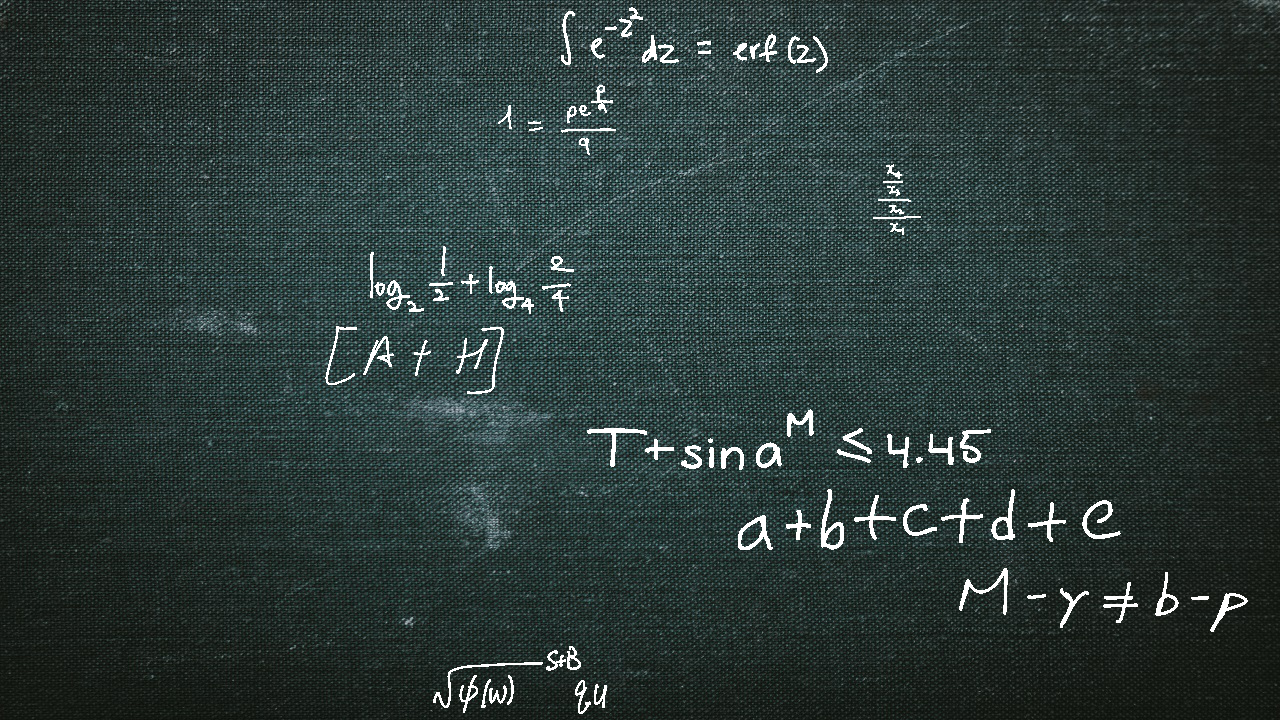 ∫ e^{-z^2} dz = erf(z)
1 = \frac{pe^{\frac{p}{q}}}{q}
\frac{\frac{\frac{x_4}{x_3}}{x_2}}{x_1}
log_2 \frac{1}{2} + log_4 \frac{2}{4}
[A + H]
T + sin a^M ≤ 4.45
a + b + c + d + e
M - y ≠ b - p
\sqrt{ψ(w)}^{S+B} q_u